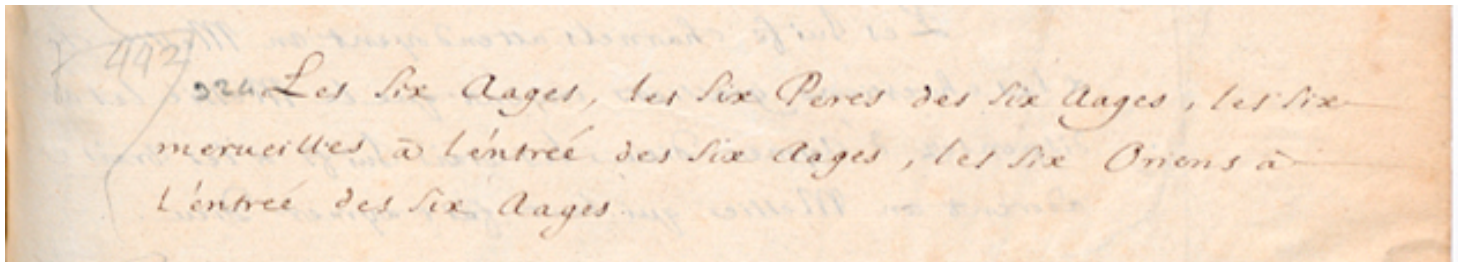 442
224 Les six Aages, les six Peres des six Aages, les six
merueilles à l'éntreé des six Aages, les six Oriens à
L'éntreé des six Aages.